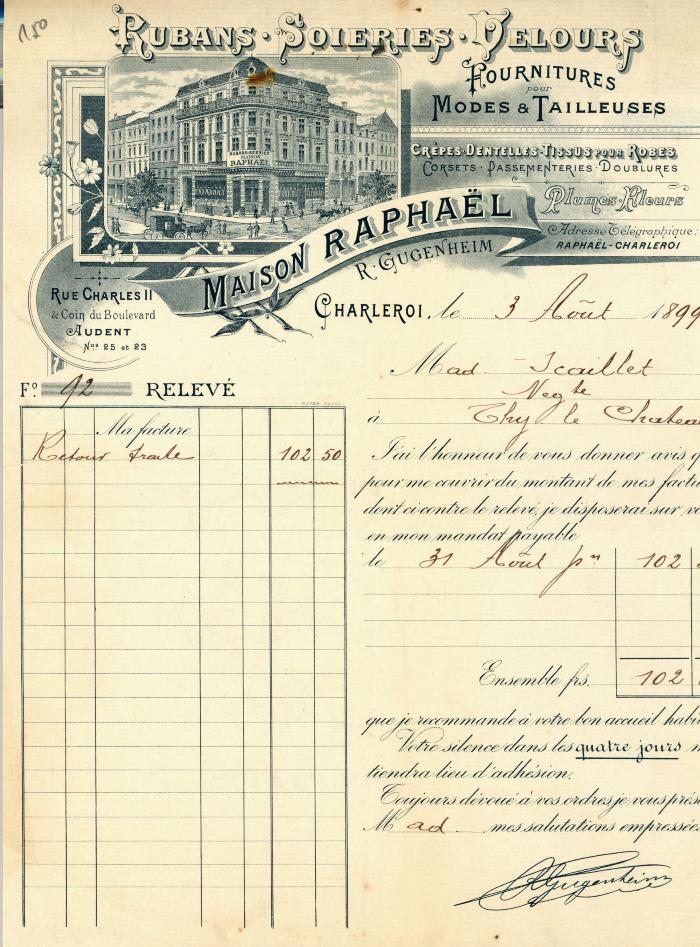 150
RUBANS · SOIERIES · VELOURS
FOURNITURES
pour
MODES & TAILLEUSES
CRÊPES · DENTELLES · TISSUS POUR ROBES
CORSETS · PASSEMENTERIES · DOUBLURES
Plumes · Fleurs
Adresse Télégraphique:
RAPHAËL - CHARLEROI
MAISON
RAPHAËL
MAISON RAPHAËL
R. GUGENHEIM
RUE CHARLES II
& Coin du Boulevard
AUDENT
Nos 25 et 23
CHARLEROI, le 3 Août 1899
Mad Scaillet
Negte
à Thy le Chateau
Fo 92 RELEVÉ
Ma facture
Retour traite 102 50
J'ai l'honneur de vous donner avis q
pour me couvrir du montant de mes factu
dont ci contre le relevé, je disposerai sur vo
en mon mandat payable
le 31 Août pn 102
Ensemble frs. 102
que je recommande à votre bon accueil habi
Votre silence dans les quatre jours
tiendra lieu d'adhésion.
Toujours dévoué à vos ordres, je vous prés
M ad mes salutations empressée
R Gugenheim